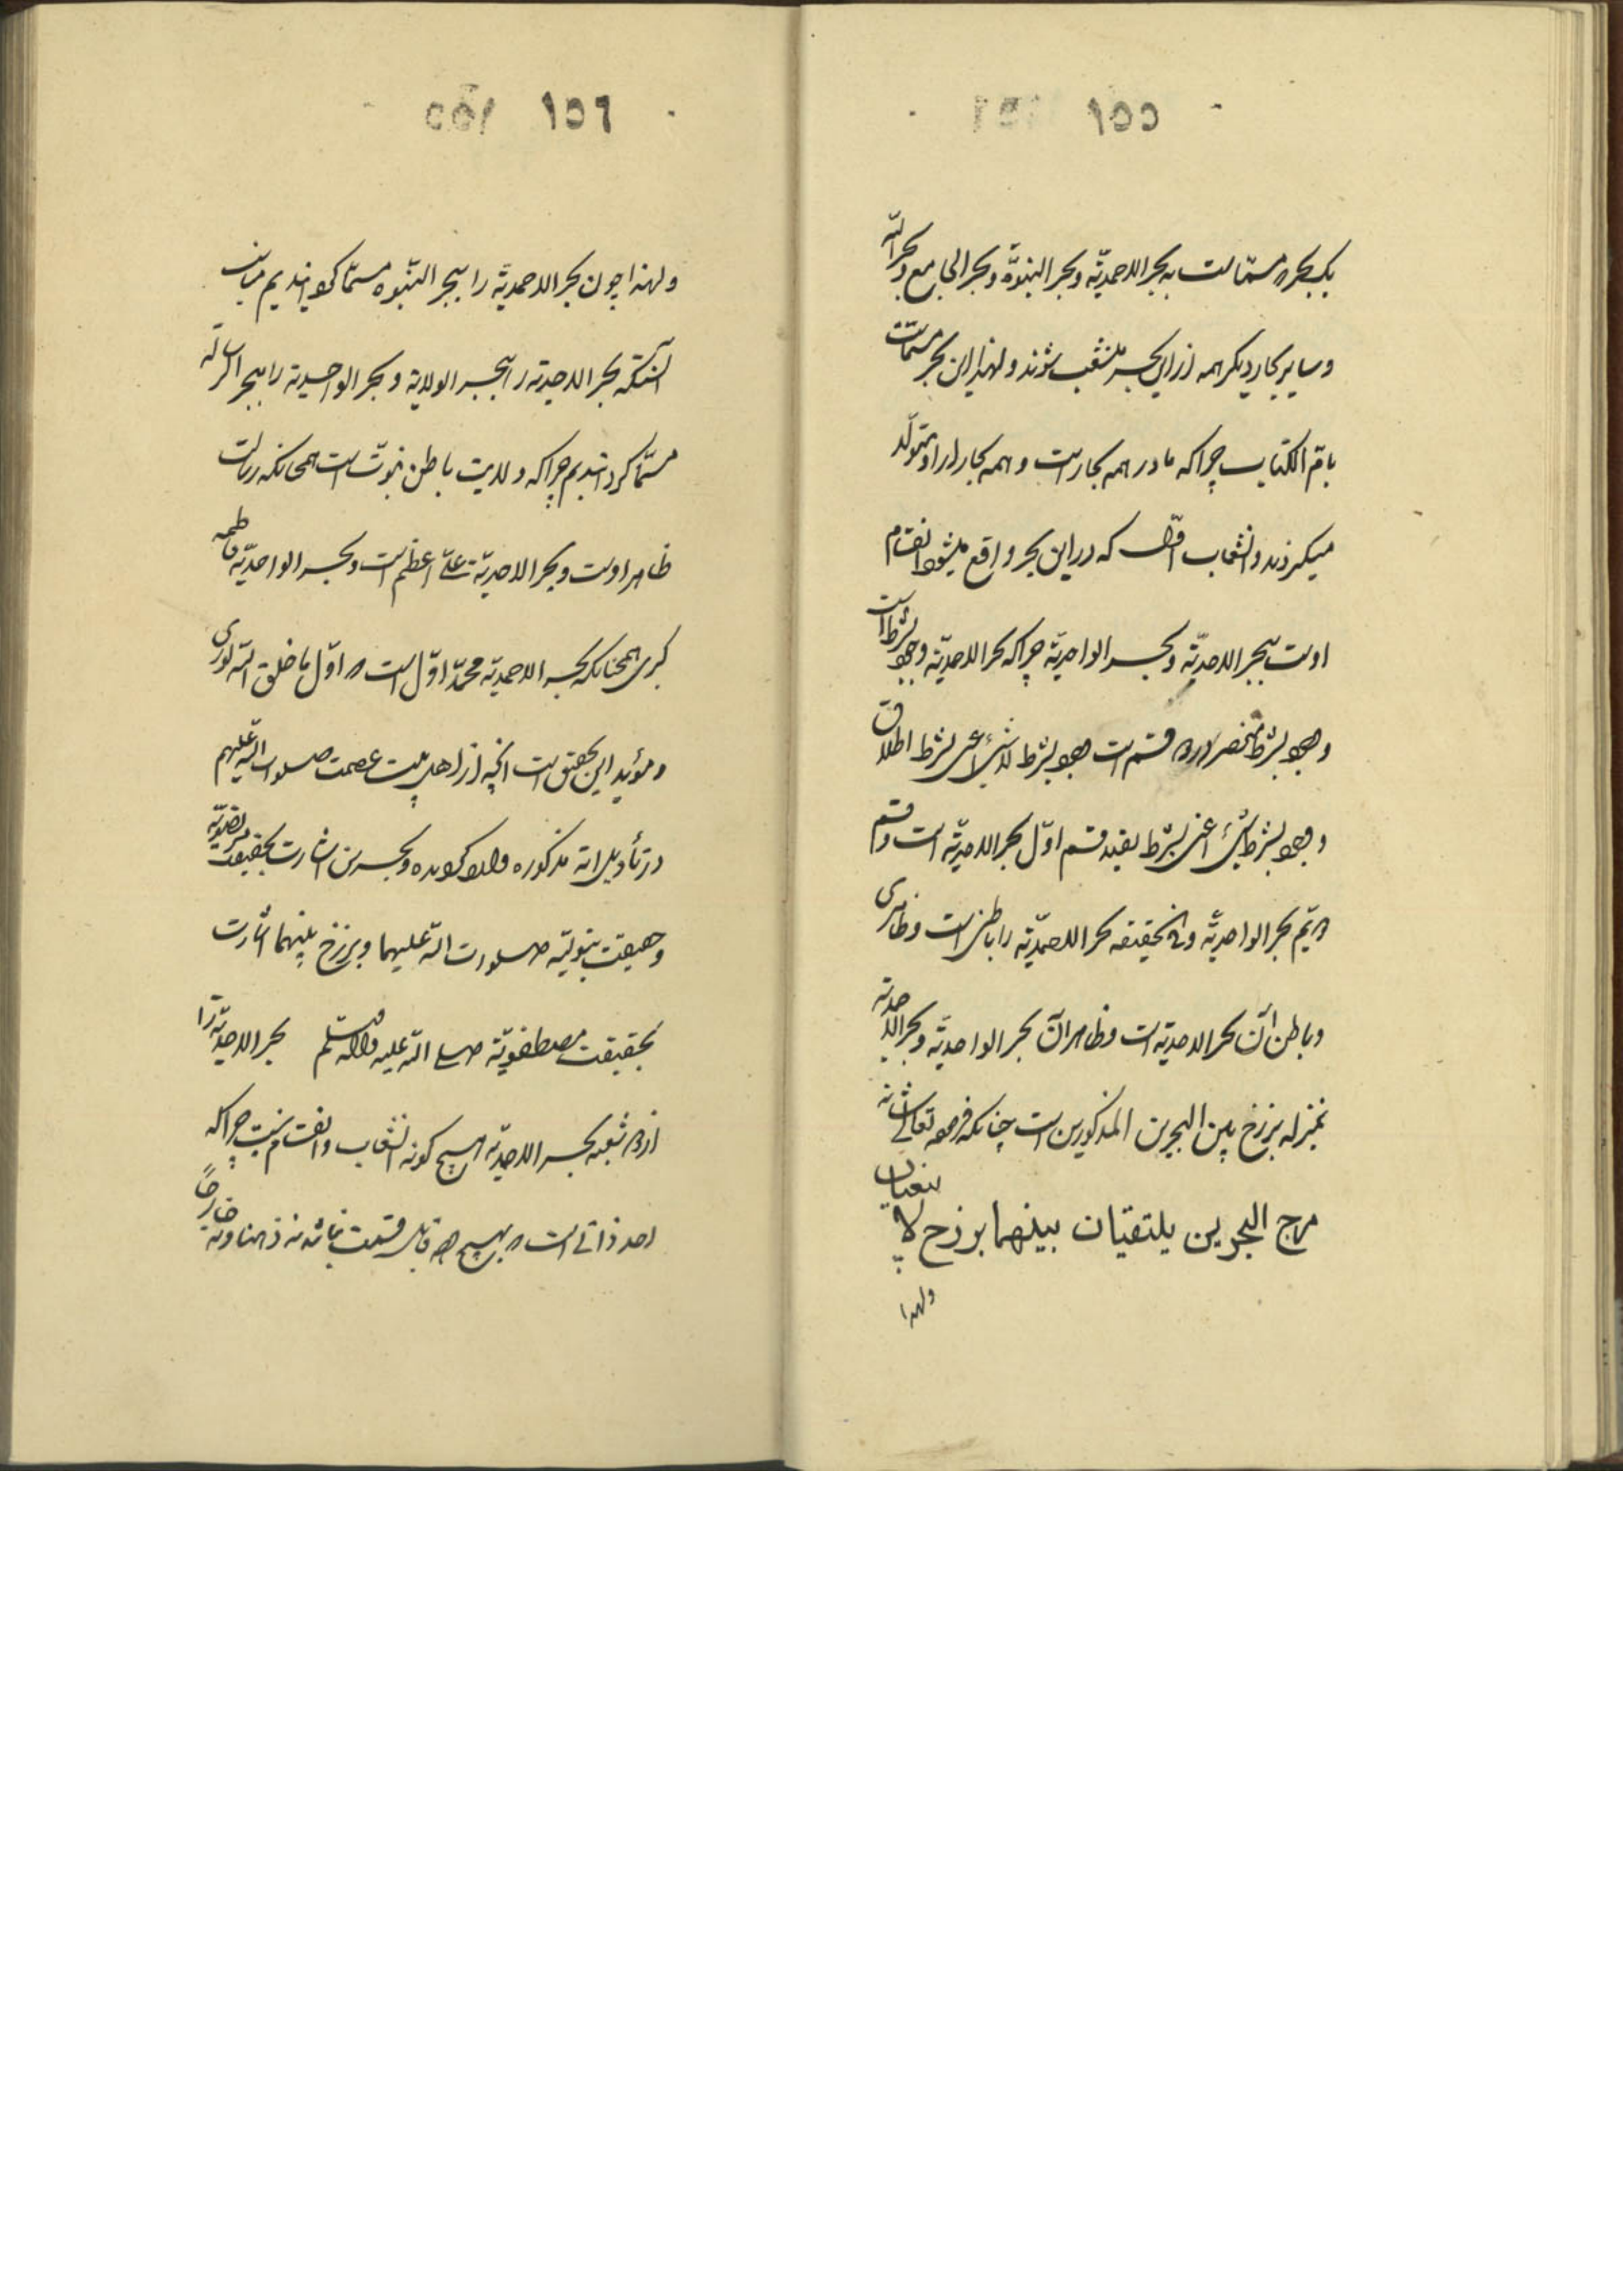 ۱۵۵
یک بحر که مسمّاست به بحر الاحمدیّه و بحر النبوّة و بحر الجامع و بحر اللّه
و سایر بحار دیگر همه از این بحر منشعب شوند و لهذا این بحر مسمّاست
بامّ الکتاب چرا که مادر همه بحار است و همه بحار از او متولّد
میگردند و انشعاب اوّل که در این بحر واقع میشود انقسام
اوست ببحر الاحدیّه و بحر الواحدیّه چرا که بحر الاحمدیّه وجود بشرط است
و وجود بشرط منحصر در دو قسم است وجود بشرط لا شیء اعنی بشرط اطلاق
و وجود بشرط شیء اعنی بشرط تقید قسم اوّل بحر الاحدیّه است و قسم
دویّم بحر الواحدیّه و فی الحقیقه بحر الاحمدیّه را باطنی است و ظاهری
و باطن آن بحر الاحدیّه است و ظاهر آن بحر الواحدیّه و بحر الاحمدیّه
بمنزله برزخ بین البحرین المذکورین است چنانکه فرموده تعالی شانه
مرج البحرین یلتقیان بینهما برزخ لا یبغیان
ولهذا
۱۵۶
ولهذا چون بحر الاحمدیّة را ببحر النّبوه مسمّا گردانیدیم مناسب
آنستکه بحر الاحدیّه را ببحر الولایة و بحر الواحدیة را ببحر الرسالة
مسمّا گردانیدیم چرا که ولایت باطن نبوّت است همچنانکه رسالت
ظاهر اوست و بحر الاحدیّة علیّ اعظم است و بحر الواحدیّه فاطمه
کبری همچنانکه بحر الاحمدیّه محمّد اوّل است که اوّل ما خلق اللّه نوری
و مؤید این تحقیق است آنچه از اهل بیت عصمت صلوات اللّه علیهم
در تأویل آیه مذکوره وارد گردیده و بحرین اشارت بحقیقت مرتضویّه
و حقیقت بتولیّه صلوات اللّه علیهما و برزخ بینهما اشارت
بحقیقت مصطفویّة صلی اللّه علیه و آله و سلّم بحر الاحدیّة را
از دو شعبه بحر الاحمدیّه هیچ گونه انشعاب و انقسام نیست چرا که
احد ذاتی است که بهیچ وجه قابل قسمت نباشد نه ذهناً و نه خارجاً